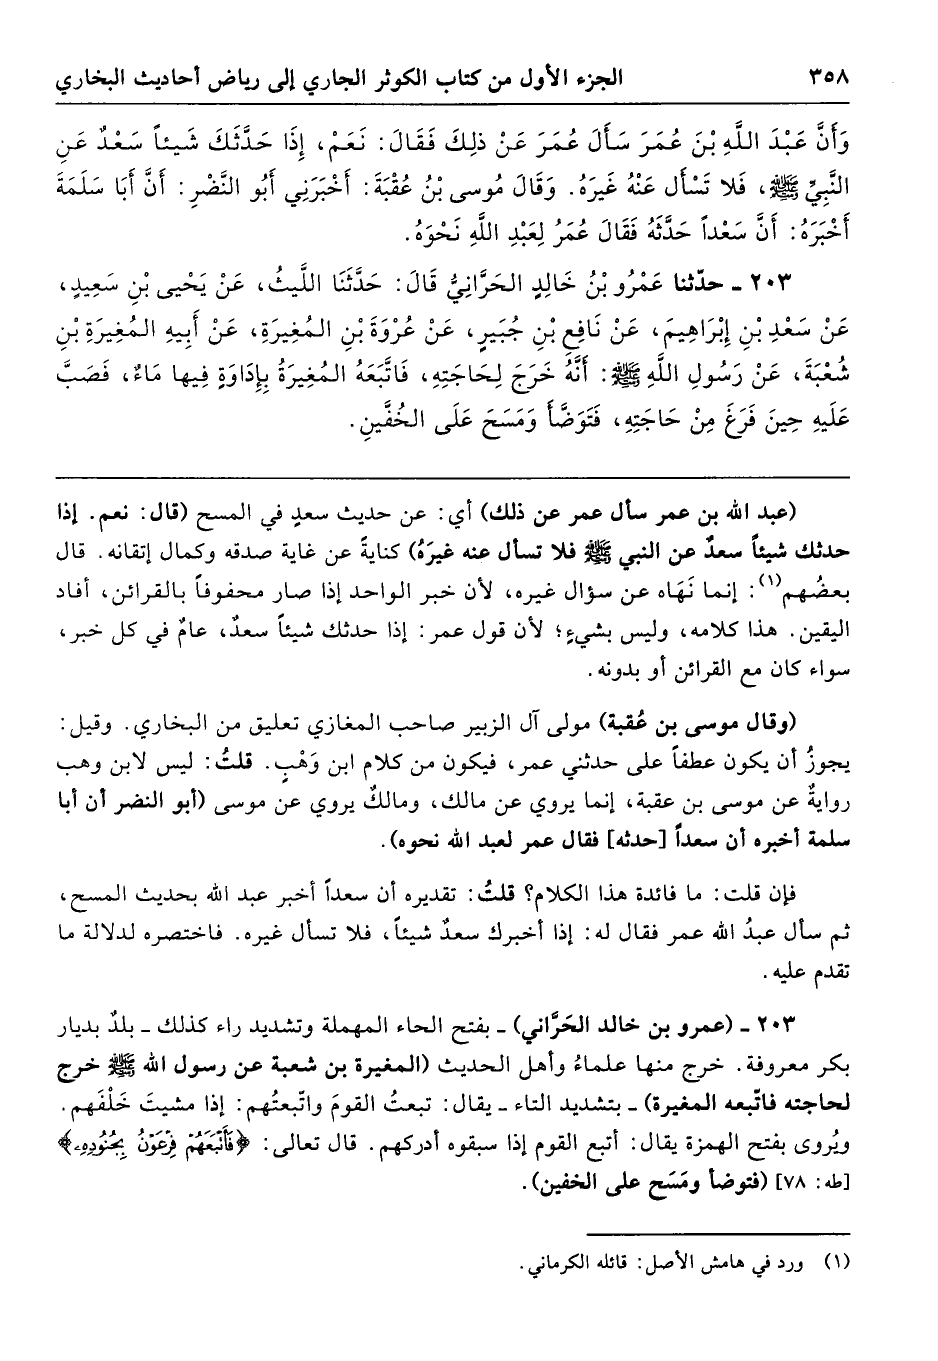 ٣٥٨ الجزء الأول من كتاب الكوثر الجاري إلى رياض أحاديث البخاري
وَأَنَّ عَبْدَ اللَّهِ بْنَ عُمَرَ سَأَلَ عُمَرَ عَنْ ذلِكَ فَقَالَ: نَعَمْ، إِذَا حَدَّثَكَ شَيئاً سَعْدٌ عَنِ
النَّبِيِّ ﷺ، فَلا تَسْأَل عَنْهُ غَيرَهُ. وَقَالَ مُوسى بْنُ عُقْبَةَ: أَخْبَرَنِي أَبُو النَّضْرِ: أَنَّ أَبَا سَلَمَةَ
أَخْبَرَهُ: أَنَّ سَعْداً حَدَّثَهُ فَقَالَ عُمَرُ لِعَبْدِ اللَّهِ نَحْوَهُ.
٢٠٣ ـ حدّثنا عَمْرُو بْنُ خَالِدٍ الحَرَّانِيُّ قَالَ: حَدَّثَنَا اللَّيثُ، عَنْ يَحْيى بْنِ سَعِيدٍ،
عَنْ سَعْدِ بْنِ إِبْرَاهِيمَ، عَنْ نَافِعِ بْنِ جُبَيرٍ، عَنْ عُرْوَةَ بْنِ المُغِيرَةِ، عَنْ أَبِيهِ المُغِيرَةِ بْنِ
شُعْبَةَ، عَنْ رَسُولِ اللَّهِ ﷺ: أَنَّهُ خَرَجَ لِحَاجَتِهِ، فَاتَّبَعَهُ المُغِيرَةُ بِإِدَاوَةٍ فِيها مَاءٌ، فَصَبَّ
عَلَيهِ حِينَ فَرَغَ مِنْ حَاجَتِهِ، فَتَوَضَّأَ وَمَسَحَ عَلَى الخُفَّينِ.
(عبد الله بن عمر سأل عمر عن ذلك) أي: عن حديث سعدٍ في المسح (قال: نعم. إذا
حدثك شيئاً سعدٌ عن النبي ﷺ فلا تسأل عنه غيرَهُ) كنايةً عن غاية صدقه وكمال إتقانه. قال
بعضُهم(١): إنما نَهَاه عن سؤال غيره، لأن خبر الواحد إذا صار محفوفاً بالقرائن، أفاد
اليقين. هذا كلامه، وليس بشيءٍ؛ لأن قول عمر: إذا حدثك شيئاً سعدٌ، عامٌ في كل خبر،
سواء كان مع القرائن أو بدونه.
(وقال موسى بن عُقبة) مولى آل الزبير صاحب المغازي تعليق من البخاري. وقيل:
يجوزُ أن يكون عطفاً على حدثني عمر، فيكون من كلام ابن وَهْبٍ. قلتُ: ليس لابن وهب
روايةٌ عن موسى بن عقبة، إنما يروي عن مالك، ومالكٌ يروي عن موسى (أبو النضر أن أبا
سلمة أخبره أن سعداً [حدثه] فقال عمر لعبد الله نحوه).
فإن قلت: ما فائدة هذا الكلام؟ قلتُ: تقديره أن سعداً أخبر عبد الله بحديث المسح،
ثم سأل عبدُ الله عمر فقال له: إذا أخبرك سعدٌ شيئاً، فلا تسأل غيره. فاختصره لدلالة ما
تقدم عليه.
٢٠٣ ـ (عمرو بن خالد الحَرَّاني) ـ بفتح الحاء المهملة وتشديد راء كذلك ـ بلدٌ بديار
بكر معروفة. خرج منها علماءُ وأهل الحديث (المغيرة بن شعبة عن رسول الله ﷺ خرج
لحاجته فاتّبعه المغيرة) ـ بتشديد التاء ـ يقال: تبعتُ القومَ واتّبعتُهم: إذا مشيتَ خَلْفَهم.
ويُروى بفتح الهمزة يقال: أتبع القوم إذا سبقوه أدركهم. قال تعالى: ﴿فَأَتْبَعَهُمْ فِرْعَوْنُ بِجُنُودِهِۦ﴾
[طه: ٧٨] (فتوضأ ومَسَح على الخفين).
(١) ورد في هامش الأصل: قائله الكرماني.